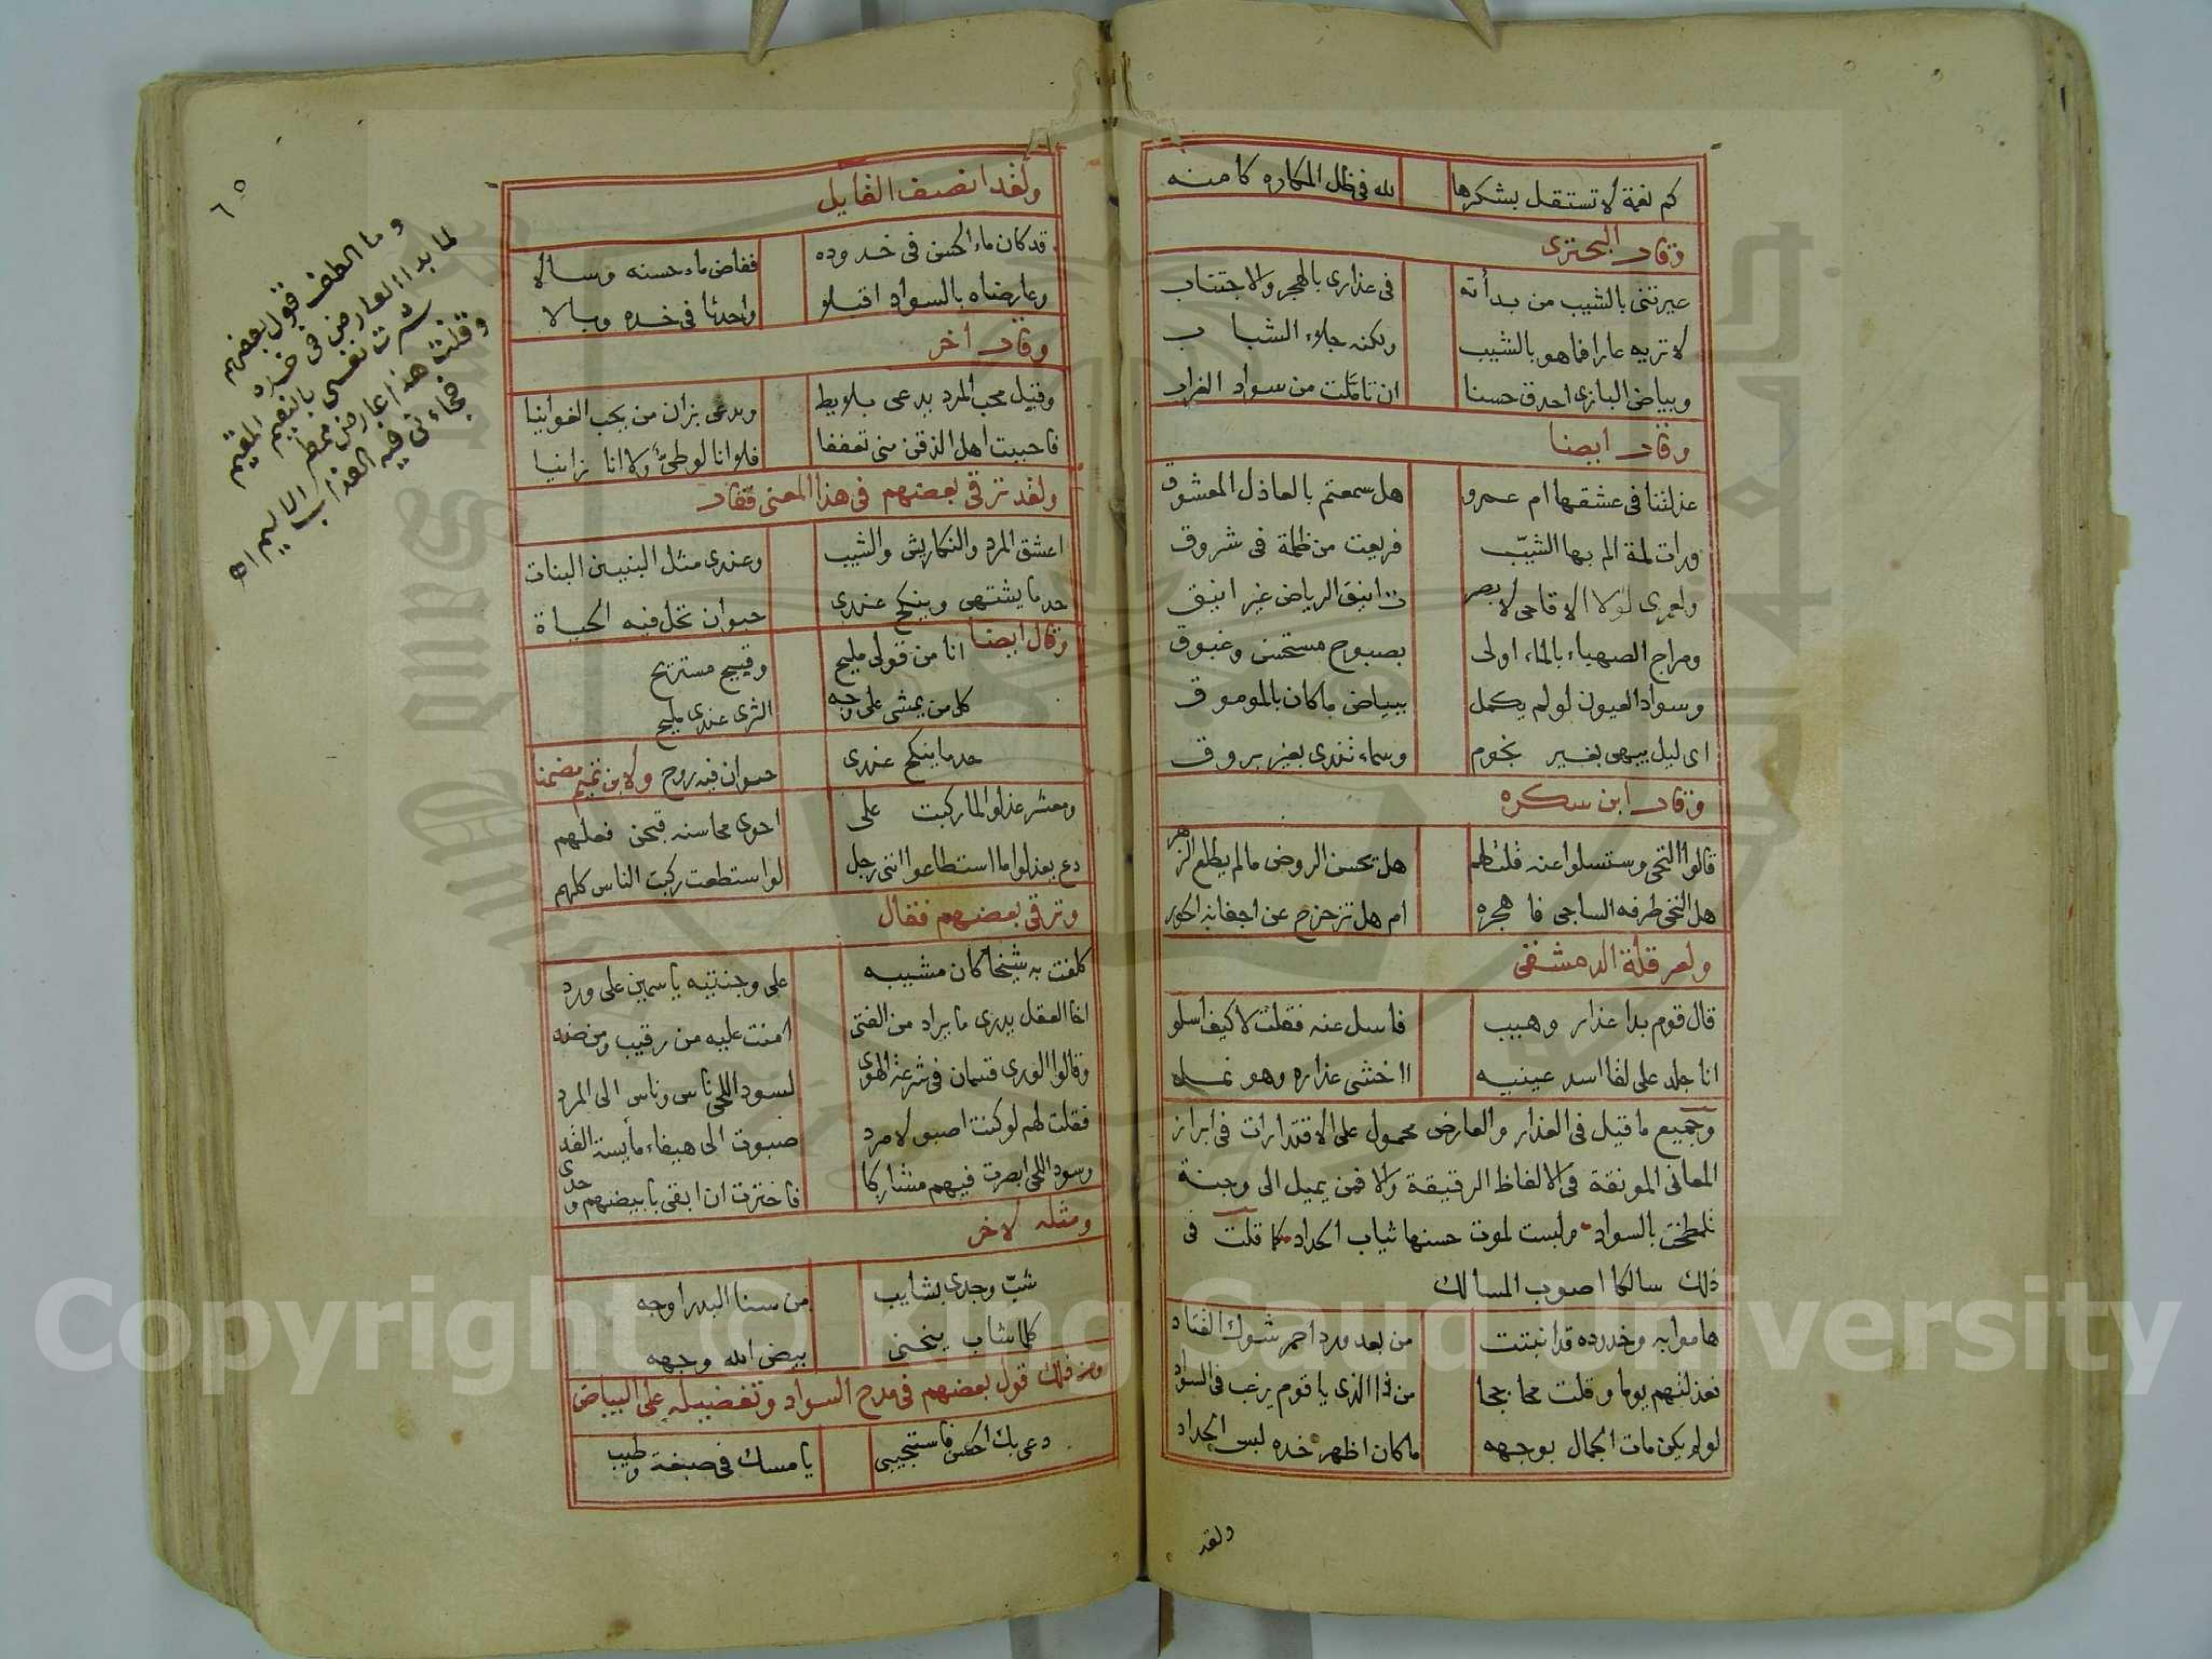 كم نعمة لا تستقل بشكرها لله في ظل المكاره كامنه
وقال البحتري
عيرتني بالشيب من بدأته في عذاري بالهجر والاجتناب
لا تريه عارا فما هو بالشيب ولكنه جلاء الشباب
وبياض البازي احدق حسنا ان تاملت من سواد الغراب
وقال ايضا
عذلتنا في عشقها ام عمرو هل سمعتم بالعاذل المعشوق
ورات لمة الم بها الشيب فريعت من ظلمة في شروق
ولعمري لولا الاقاحي لابصرت انيق الرياض غير انيق
ومزاج الصهباء بالماء اولى بصبوح مستحسن وغبوق
وسواد العيون لو لم يكمل ببياض ما كان بالموموق
اي ليل يبهى بغير نجوم وسماء تندى بغير بروق
وقال ابن سكره
قالوا التحى وستسلوا عنه قلت لهم هل يحسن الروض ما لم يطلع الزهر
هل التحى طرفه الساجي فاهجره ام هل تزحزح عن اجفانه الحور
ولعرقلة الدمشقي
قال قوم بدا عذار وهيب فاسل عنه فقلت لا كيف اسلو
انا جلد على لقا اسد عينيه ااخشى عذاره وهو نمله
وجميع ما قيل في العذار والعارض محمول على الاقتدارات في ابراز
المعاني المونقة في الالفاظ الرقيقة والا فمن يميل الى وجنة
تلطخت بالسواد ولبست لموت حسنها ثياب الحداد كما قلت في
ذلك سالكا اصوب المسالك
هاموا به وخدوده قد انبتت من بعد ورد احمر شوك القتاد
فعذلتهم يوما وقلت محاججا من ذا الذي يا قوم يرغب في السواد
لو لم يكن مات الجمال بوجهه ما كان اظهر خده لبس الحداد
ولقد
٦٥
ولقد انصف القايل
قد كان ماء الحسن في خدوده ففاض ماء حسنه وسالا
وعارضاه بالسواد اقبلو واحدثا في خده وبالا
وقال اخر
وقيل محب المرد يدعى بلايط ويدعى بزان من يحب الغوانيا
فاحببت اهل الذقن مني تعففا فلا انا لوطيّ ولا انا زانيا
ولقد ترقى بعضهم في هذا المعنى فقال
اعشق المرد والنكاريش والشيب وعندي مثل البنين البنات
حد ما يشتهى وينكح عندي حيوان تحل فيه الحياة
وقال ايضا انا من قولي مليح وقبيح مستريح
كل من يمشي على وجه الثرى عندي مليح
حد ما ينكح عندي حيوان فيه روح ولابن تميم مضمنا
ومعشر عذلوا لما ركبت على احوى محاسنه قبحن فعلهم
دع يعذلوا ما استطاعوا انني رجل لو استطعت ركبت الناس كلهم
وترقى بعضهم فقال
كلفت به شيخا كان مشيبه على وجنتيه ياسمين على ورد
اخا العقل يدري ما يراد من الفتى امنت عليه من رقيب ومن ضد
وقالوا الورى قسمان في شرعة الهوى لسود اللحى ناس وناس الى المرد
فقلت لهم لو كنت اصبو لامرد صبوت الى هيفاء مايسة القد
وسود اللحى ابصرت فيهم مشاركا فاخترت ان ابقى بابيضهم وحدي
ومثله لاخر
شبّ وجدي بشايب من سنا البدر اوجه
كلما شاب ينحني بيض الله وجهه
ومن ذلك قول بعضهم في مدح السواد وتفضيله على البياض
دعي بك الحسن فاستجيبي يا مسك في صبغة وطيب
وما الطف قول بعضهم
لما بدا العارض في خده
بشرت نفسي بالنعيم المقيم
وقلت هذا عارض ممطر
فجاءني فيه العذاب الاليم اه
Copyright © King Saud University